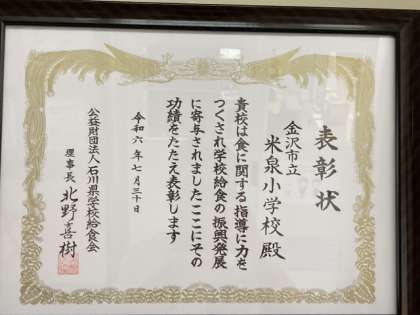 表彰状
金沢市立
米泉小学校殿
貴校は食に関する指導に力を
つくされ学校給食の振興発展
に寄与されましたここにその
功績をたたえ表彰します
令和六年七月三十日
公益財団法人石川県学校給食会
理事長 北野喜樹